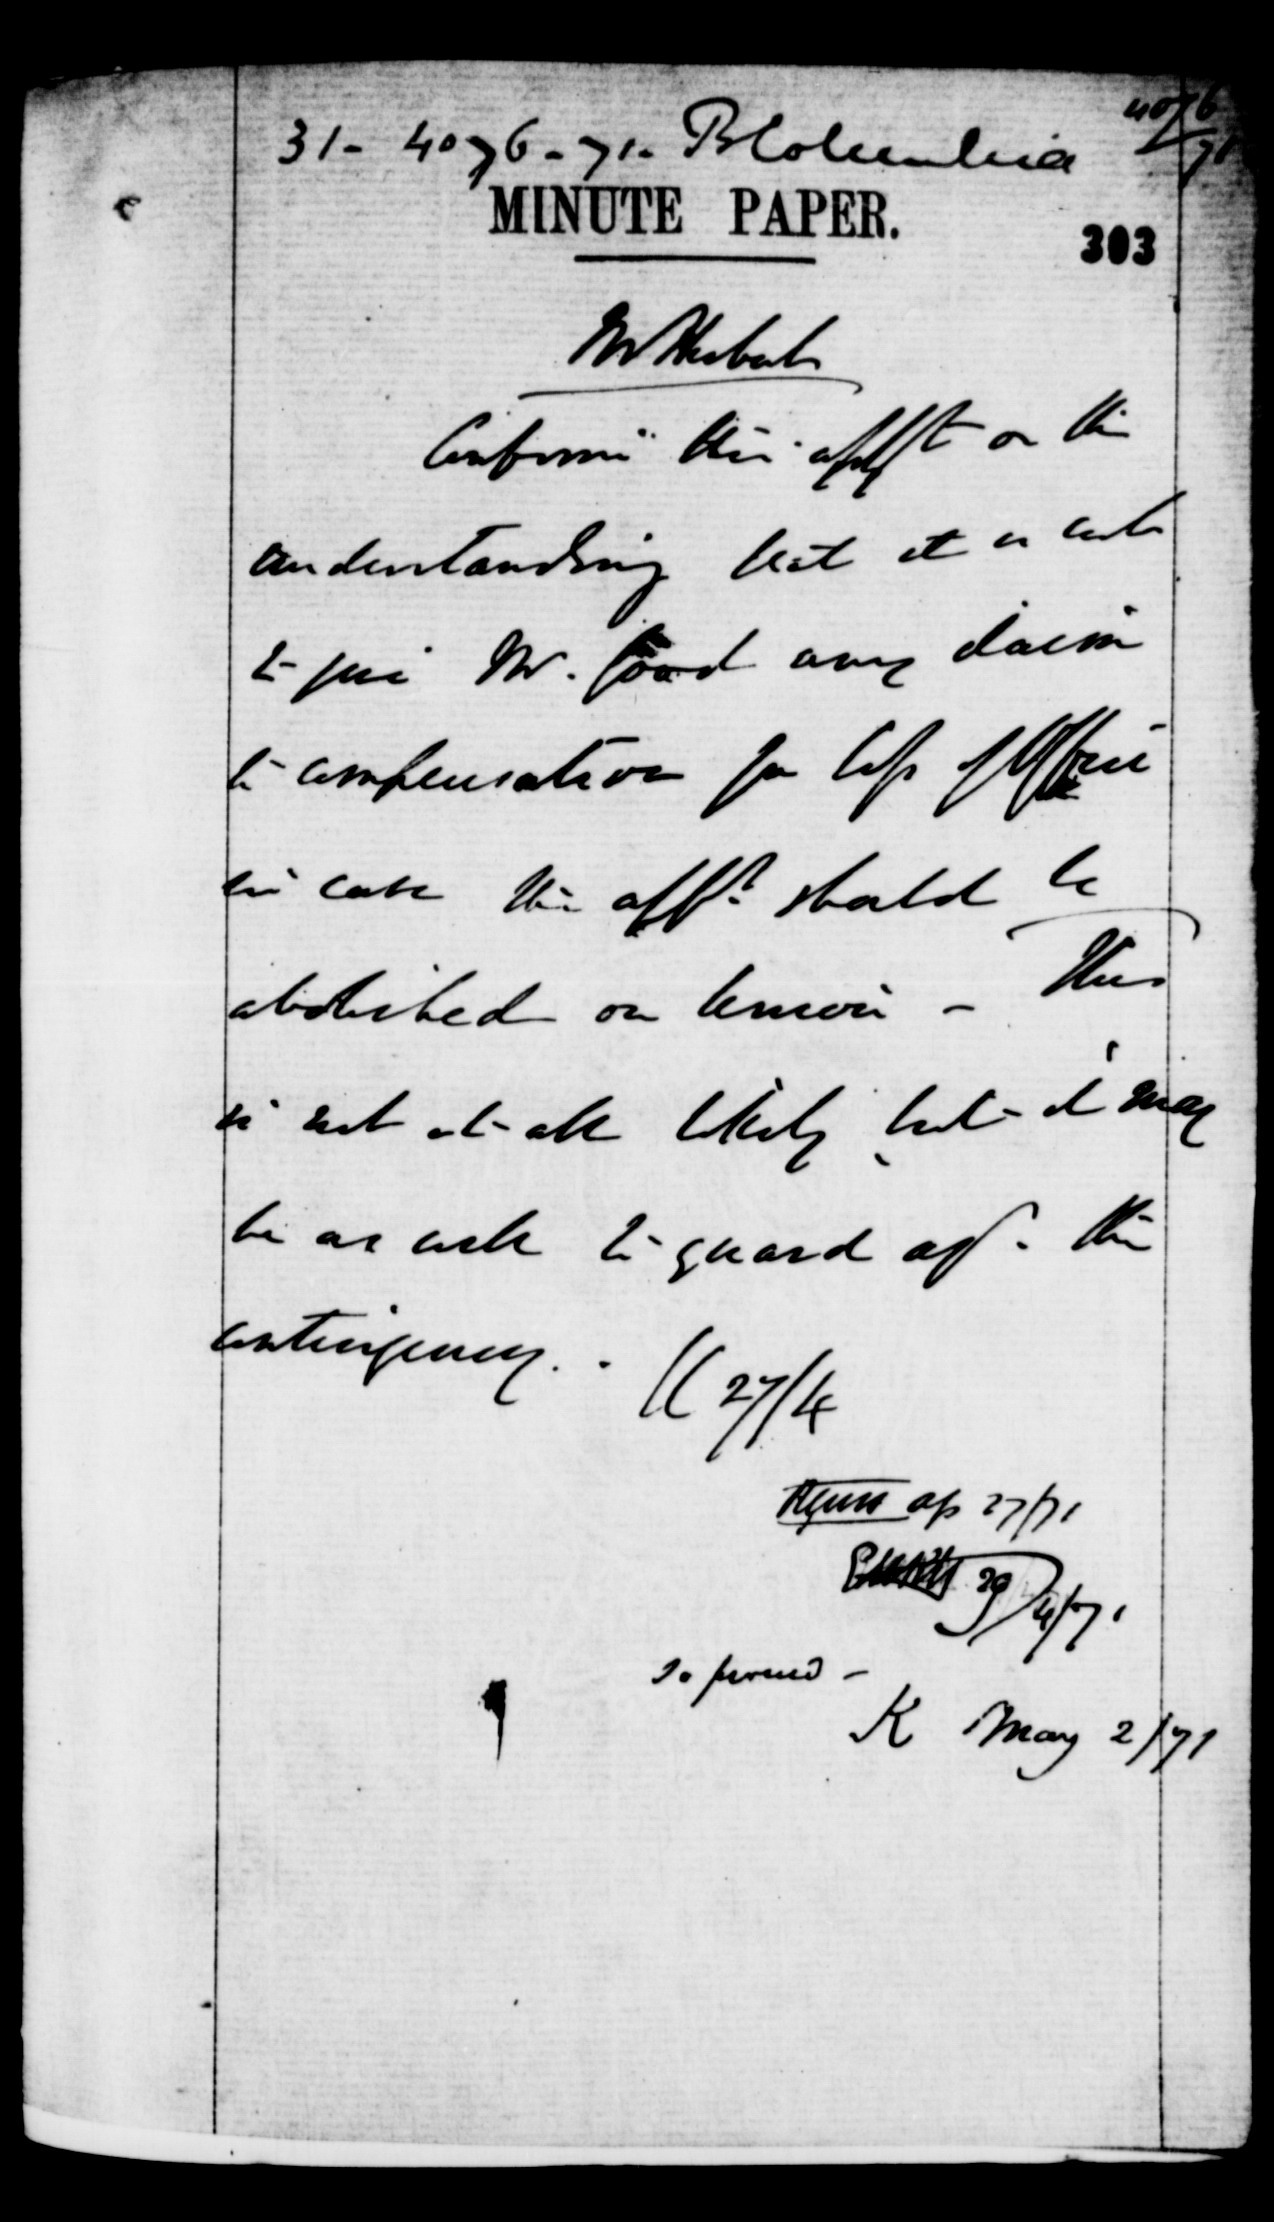 4076/71
31 - 4076 - 71. B Columbia
MINUTE PAPER.
303
Mr Herbert
Confirm this appt on the
understanding that it is not
to give Mr. Good any claim
to compensation for loss of Office
in case the appt. should be
abolished on Union - This
is not at all likely, but it may
be as well to guard agt. the
contingency.
27/4
Ap 27/71
29/4/71
So proceed -
K May 2/71